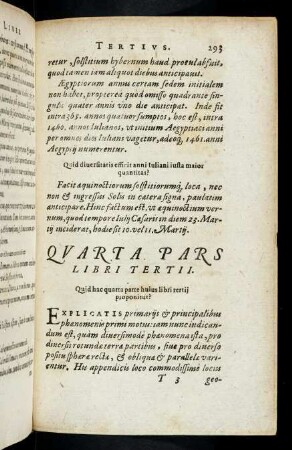 TERTIVS. 293
retur, solstitium hybernum haud procul abfuit,
quod tamen iam aliquot diebus anticipauit.
Ægyptiorum annus certam sedem initialem
non habet, propterea quòd omisso quadrante sin-
gulis quater annis vno die anticipat. Inde fit
intra 365. annos quatuor sumptos, hoc est, intra
1460. annos Iulianos, vt initium Aegyptiaci anni
per omnes dies Iuliani vagetur, adeoq́, 1461. anni
Aegyptij numerentur.
Quid diuersitatis efficit anni Iuliani iusta maior
quantitas?
Facit æquinoctiorum solstitiorumq́, loca, nec
non & ingressus Solis in cætera signa, paulatim
anticipare. Hinc factum est, vt æquinoctium ver-
num, quod tempore Iulij Cæsaris in diem 23. Mar-
tij inciderat, hodie sit 10. vel 11. Martij.
QVARTA PARS
LIBRI TERTII.
Quid hac quarta parte huius libri tertij
proponitur?
EXPLICATIS primarijs & principalibus
phænomenis primi motus: iam nunc indican-
dum est, quàm diuersimodè phænomena ista, pro
diuersis rotundæ terræ partibus, siue pro diuerso
positu sphæræ rectæ, & obliquæ & parallelæ vari-
entur. His appendicis loco commodissimè locus
T 3 geo-